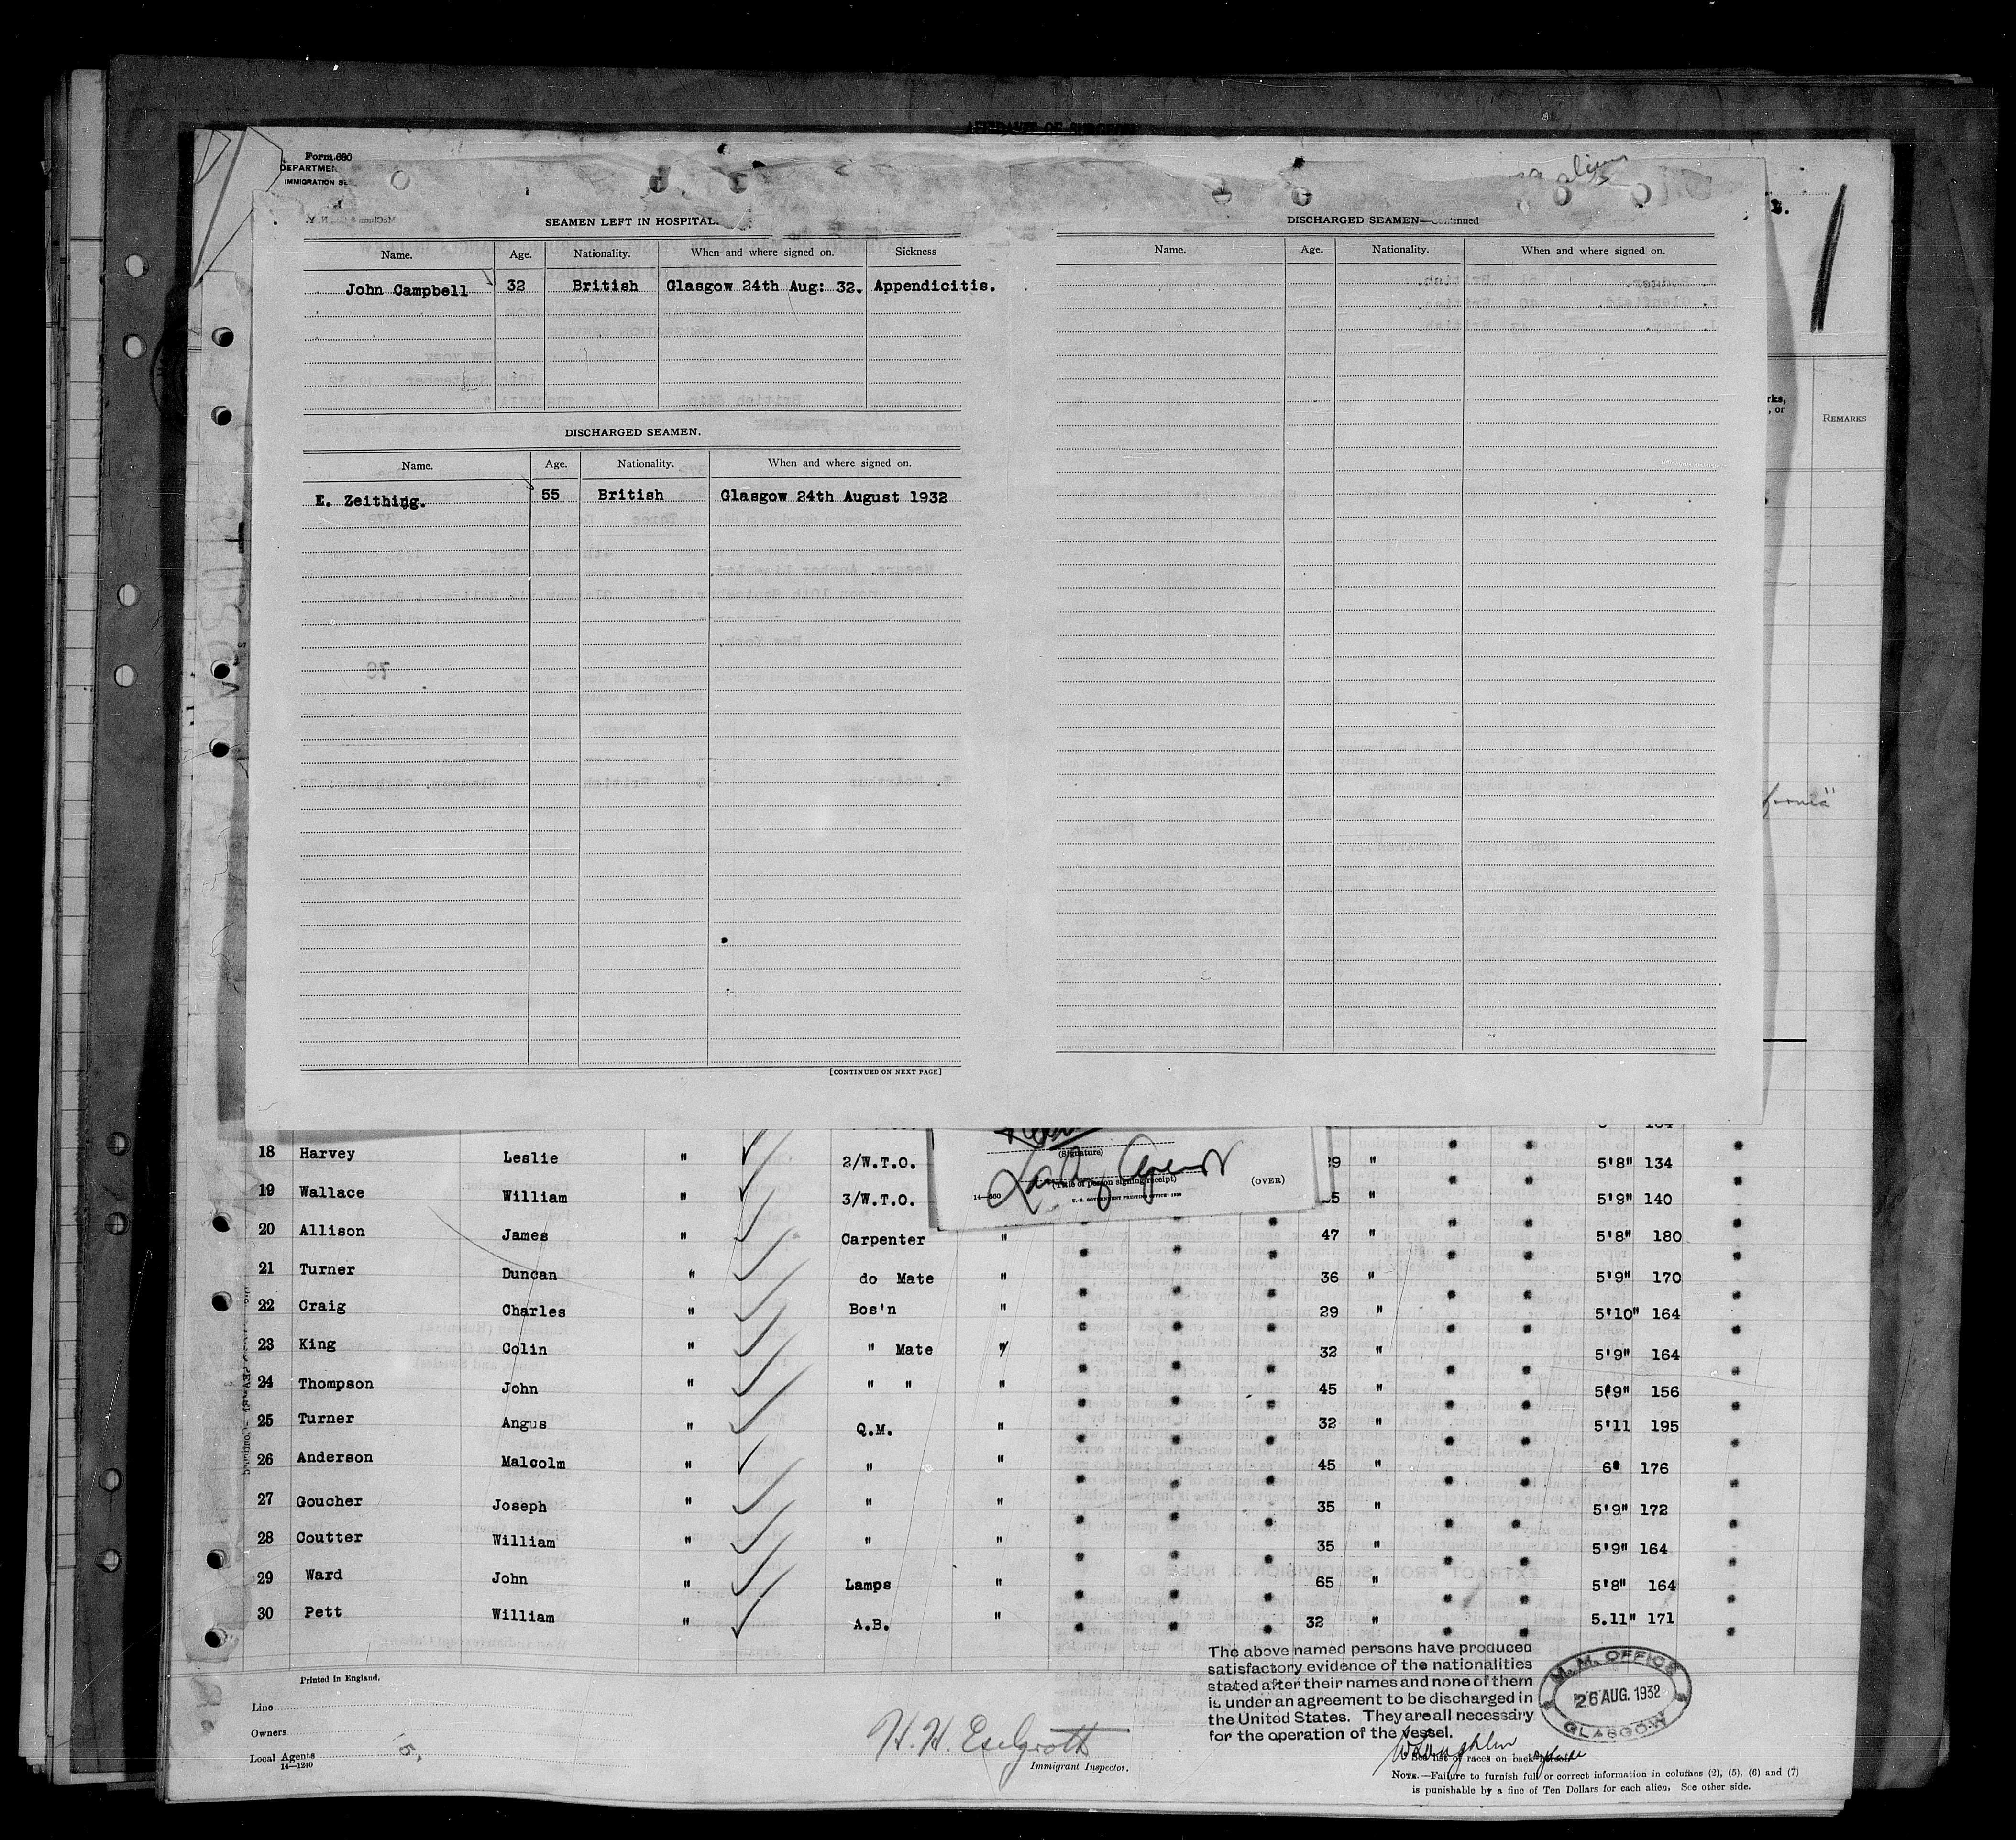 Form 680
DEPARTMEN
IMMIGRATION SE
SEAMEN LEFT IN HOSPITAL.
Name. Age. Nationality. When and where signed on. Sickness
John Campbell 32 British Glasgow 24th Aug: 32. Appendicitis.
DISCHARGED SEAMEN.
Name. Age. Nationality. When and where signed on.
E. Zeithing. 55 British Glasgow 24th August 1932
[CONTINUED ON NEXT PAGE]
DISCHARGED SEAMEN—Continued
Name. Age. Nationality. When and where signed on.
REMARKS
18 Harvey Leslie " 2/W.T.O. 29 " " " 5'8" 134 "
19 Wallace William " 3/W.T.O. 5 " " " 5'9" 140 "
20 Allison James " Carpenter " " " " 47 " " " 5'8" 180 "
21 Turner Duncan " do Mate " " " " 36 " " " 5'9" 170 "
22 Craig Charles " Bos'n " " " " 29 " " " 5'10" 164 "
23 King Colin " " Mate " " " " 32 " " " 5'9" 164 "
24 Thompson John " " " " " " " 45 " " " 5'9" 156 "
25 Turner Angus " Q.M. " " " " 32 " " " 5'11 195 "
26 Anderson Malcolm " " " " " " 45 " " " 6' 176 "
27 Goucher Joseph " " " " " " 35 " " " 5'9" 172 "
28 Coutter William " " " " " " 35 " " " 5'9" 164 "
29 Ward John " Lamps " " " " 65 " " " 5'8" 164 "
30 Pett William " A.B. " " " " 32 " " " 5.11" 171 "
(Signature)
Landing Agent
(Title of person signing receipt)
14—680 U. S. GOVERNMENT PRINTING OFFICE: 1930
(OVER)
The above named persons have produced
satisfactory evidence of the nationalities
stated after their names and none of them
is under an agreement to be discharged in
the United States. They are all necessary
for the operation of the vessel.
M.M. OFFICE
26 AUG. 1932
GLASGOW
Printed in England.
Line
Owners
Local Agents
14—1240
H. H. Eselgroth
Immigrant Inspector.
See list of races on back
NOTE.—Failure to furnish full or correct information in columns (2), (5), (6) and (7)
is punishable by a fine of Ten Dollars for each alien. See other side.